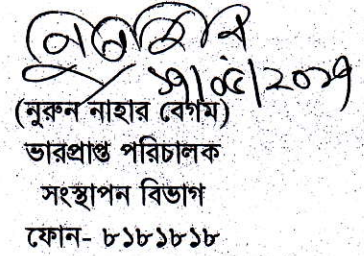 (নুরুন নাহার বেগম)
ভারপ্রাপ্ত পরিচালক
সংস্থাপন বিভাগ
ফোন- ৮১৮১৮১৮